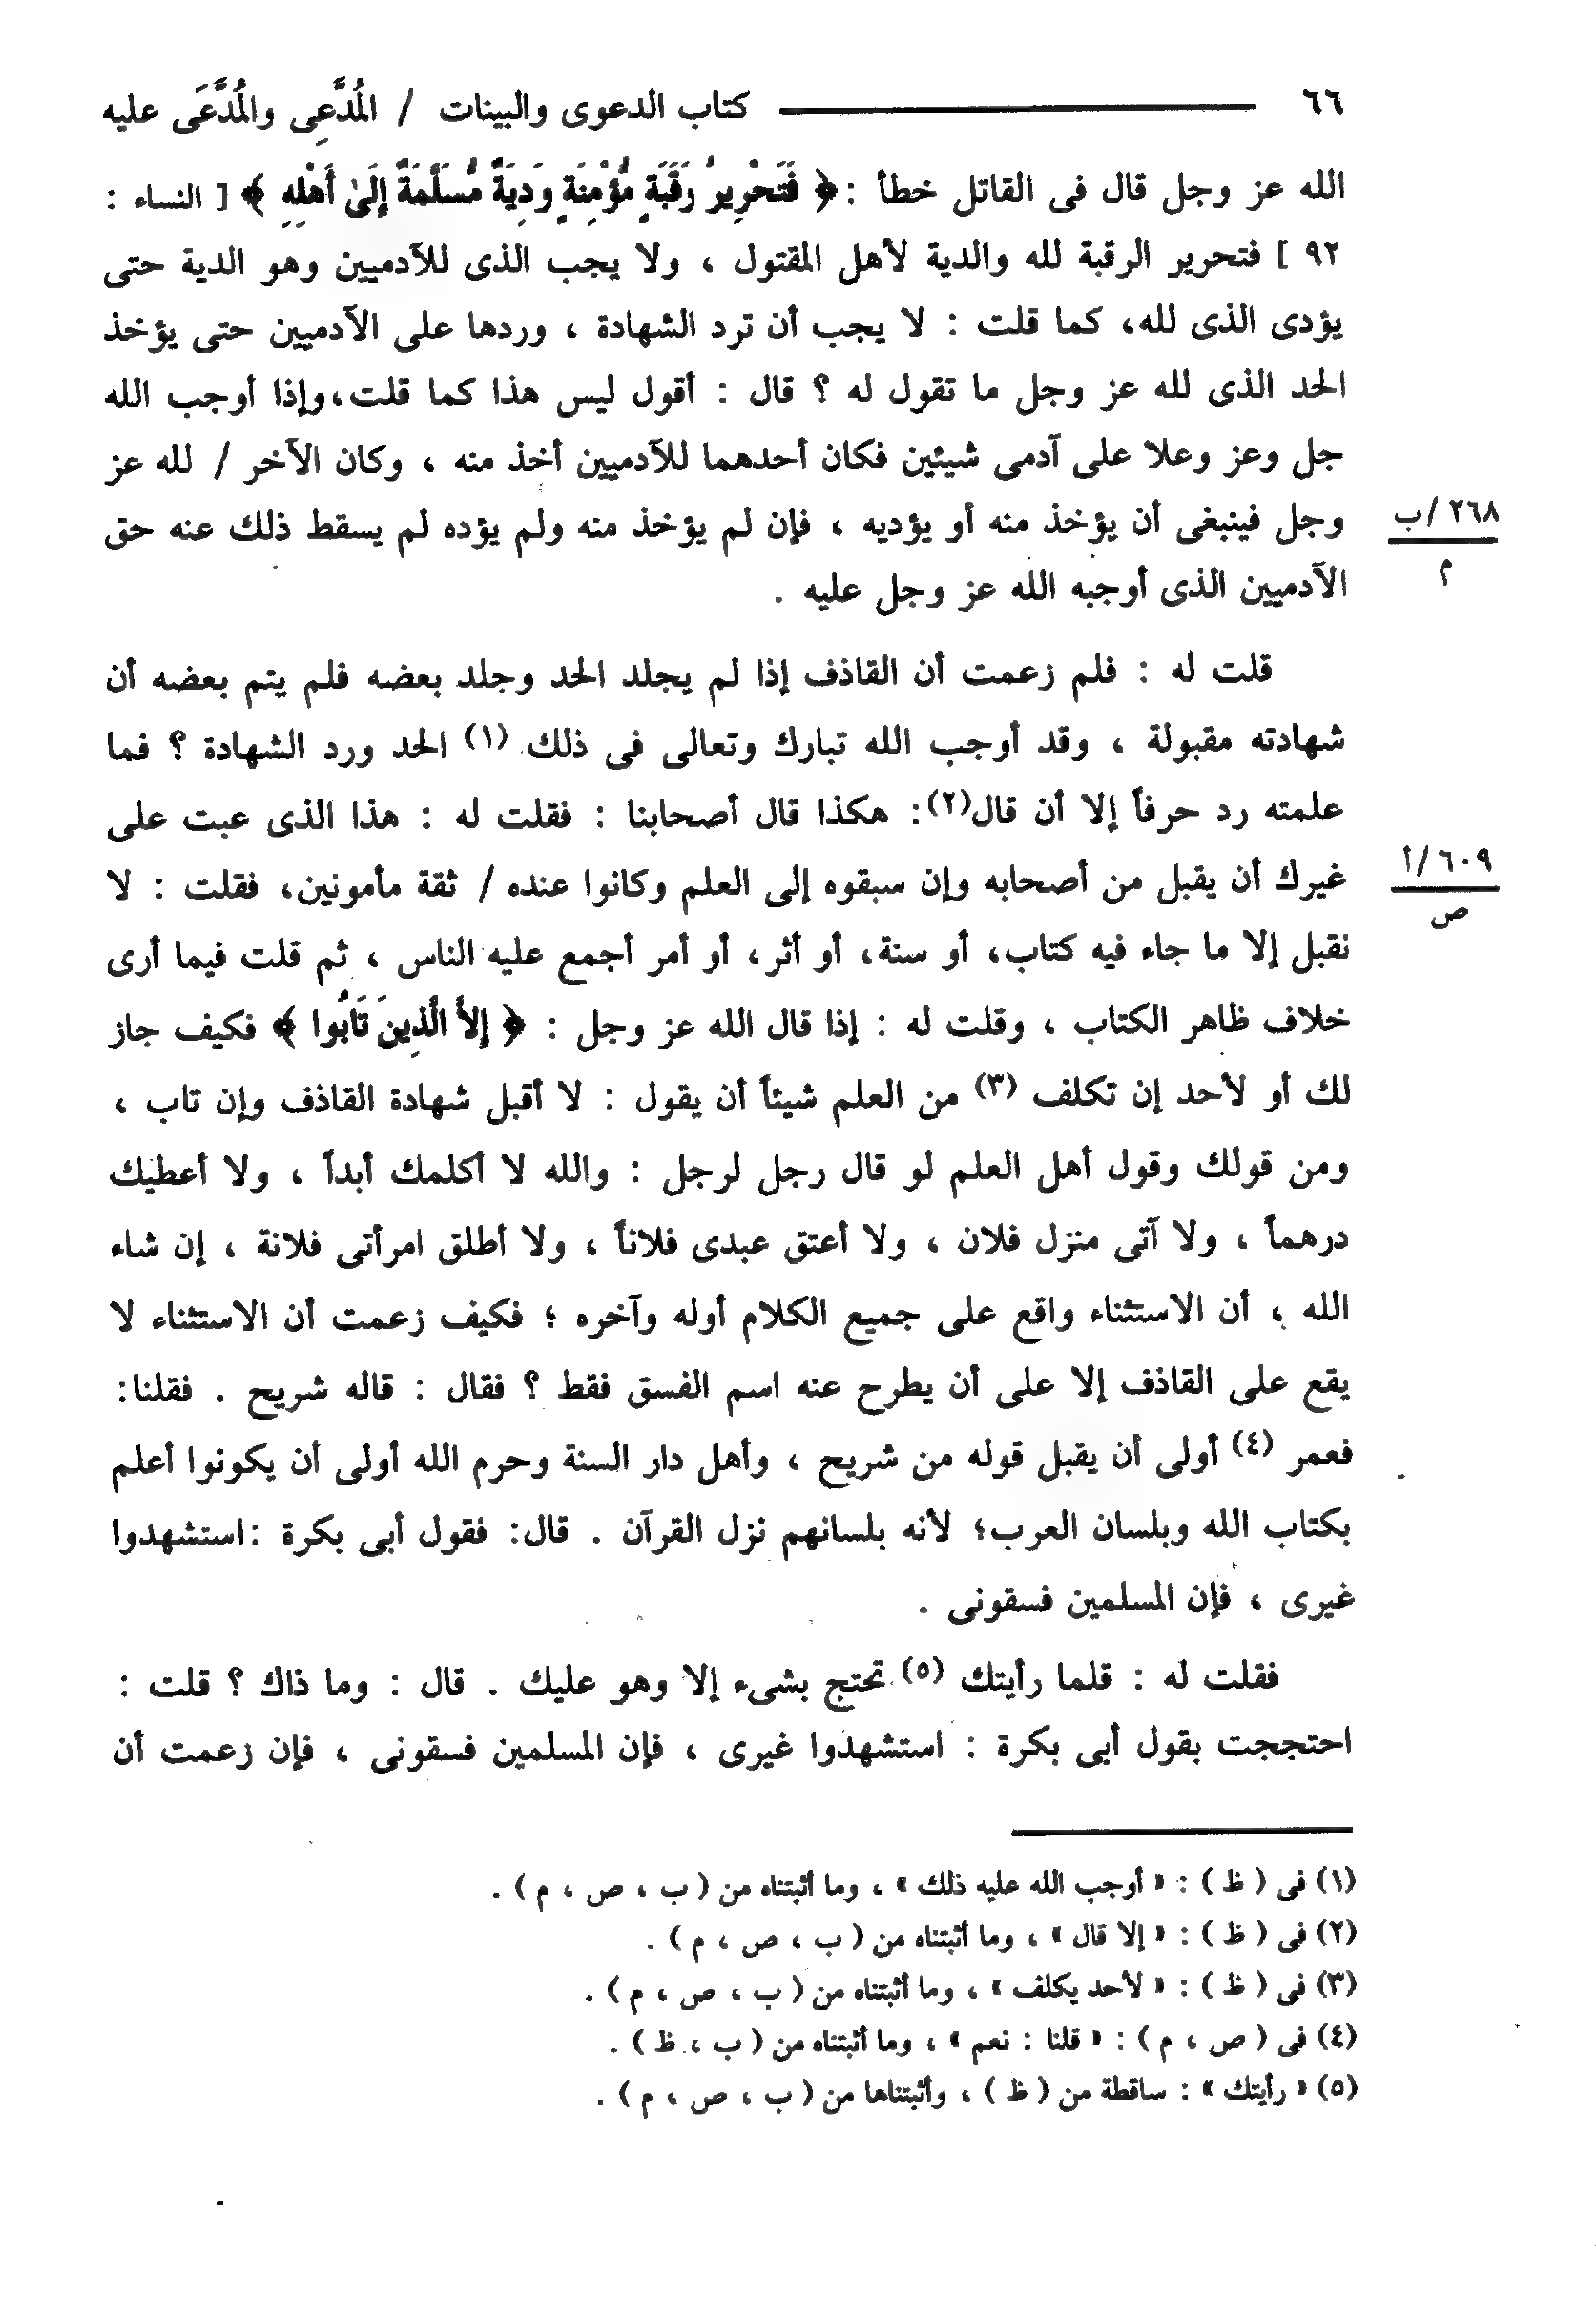 ٦٦ كتاب الدعوى والبينات / المُدَّعِى والمُدَّعَى عليه
الله عز وجل قال فى القاتل خطأ :﴿ فَتَحْرِيرُ رَقَبَةٍ مُّؤْمِنَةٍ وَدِيَةٌ مُّسَلَّمَةٌ إِلَىٰ أَهْلِهِ ﴾ [ النساء :
٩٢ ] فتحرير الرقبة لله والدية لأهل المقتول ، ولا يجب الذى للآدميين وهو الدية حتى
يؤدى الذى لله، كما قلت : لا يجب أن ترد الشهادة ، وردها على الآدميين حتى يؤخذ
الحد الذى لله عز وجل ما تقول له ؟ قال : أقول ليس هذا كما قلت،وإذا أوجب الله
جل وعز وعلا على آدمى شيئين فكان أحدهما للآدميين أخذ منه ، وكان الآخر / لله عز
وجل فينبغى أن يؤخذ منه أو يؤديه ، فإن لم يؤخذ منه ولم يؤده لم يسقط ذلك عنه حق
٢٦٨/ب
م
الآدميين الذى أوجبه الله عز وجل عليه .
قلت له : فلم زعمت أن القاذف إذا لم يجلد الحد وجلد بعضه فلم يتم بعضه أن
شهادته مقبولة ، وقد أوجب الله تبارك وتعالى فى ذلك (١) الحد ورد الشهادة ؟ فما
علمته رد حرفاً إلا أن قال(٢): هكذا قال أصحابنا : فقلت له : هذا الذى عبت على
غيرك أن يقبل من أصحابه وإن سبقوه إلى العلم وكانوا عنده / ثقة مأمونين، فقلت : لا
٦٠٩/أ
ص
نقبل إلا ما جاء فيه كتاب، أو سنة، أو أثر، أو أمر أجمع عليه الناس ، ثم قلت فيما أرى
خلاف ظاهر الكتاب ، وقلت له : إذا قال الله عز وجل : ﴿ إِلاَّ الَّذِينَ تَابُوا ﴾ فكيف جاز
لك أو لأحد إن تكلف (٣) من العلم شيئاً أن يقول : لا أقبل شهادة القاذف وإن تاب ،
ومن قولك وقول أهل العلم لو قال رجل لرجل : والله لا أكلمك أبداً ، ولا أعطيك
درهماً ، ولا آتى منزل فلان ، ولا أعتق عبدى فلاناً ، ولا أطلق امرأتى فلانة ، إن شاء
الله ، أن الاستثناء واقع على جميع الكلام أوله وآخره ؛ فكيف زعمت أن الاستثناء لا
يقع على القاذف إلا على أن يطرح عنه اسم الفسق فقط ؟ فقال : قاله شريح . فقلنا:
فعمر (٤) أولى أن يقبل قوله من شريح ، وأهل دار السنة وحرم الله أولى أن يكونوا أعلم
بكتاب الله وبلسان العرب؛ لأنه بلسانهم نزل القرآن . قال: فقول أبى بكرة :استشهدوا
غيرى ، فإن المسلمين فسقونى .
فقلت له : قلما رأيتك (٥) تحتج بشىء إلا وهو عليك . قال : وما ذاك ؟ قلت :
احتججت بقول أبى بكرة : استشهدوا غيرى ، فإن المسلمين فسقونى ، فإن زعمت أن
(١) فى ( ظ ) : « أوجب الله عليه ذلك » ، وما أثبتناه من ( ب ، ص ، م ) .
(٢) فى ( ظ ) : « إلا قال » ، وما أثبتناه من ( ب ، ص ، م ) .
(٣) فى ( ظ ) : « لأحد يكلف » ، وما أثبتناه من ( ب ، ص ، م ) .
(٤) فى ( ص ، م ) : « قلنا : نعم » ، وما أثبتناه من ( ب ، ظ ) .
(٥) « رأيتك » : ساقطة من ( ظ ) ، وأثبتناها من ( ب ، ص ، م ) .